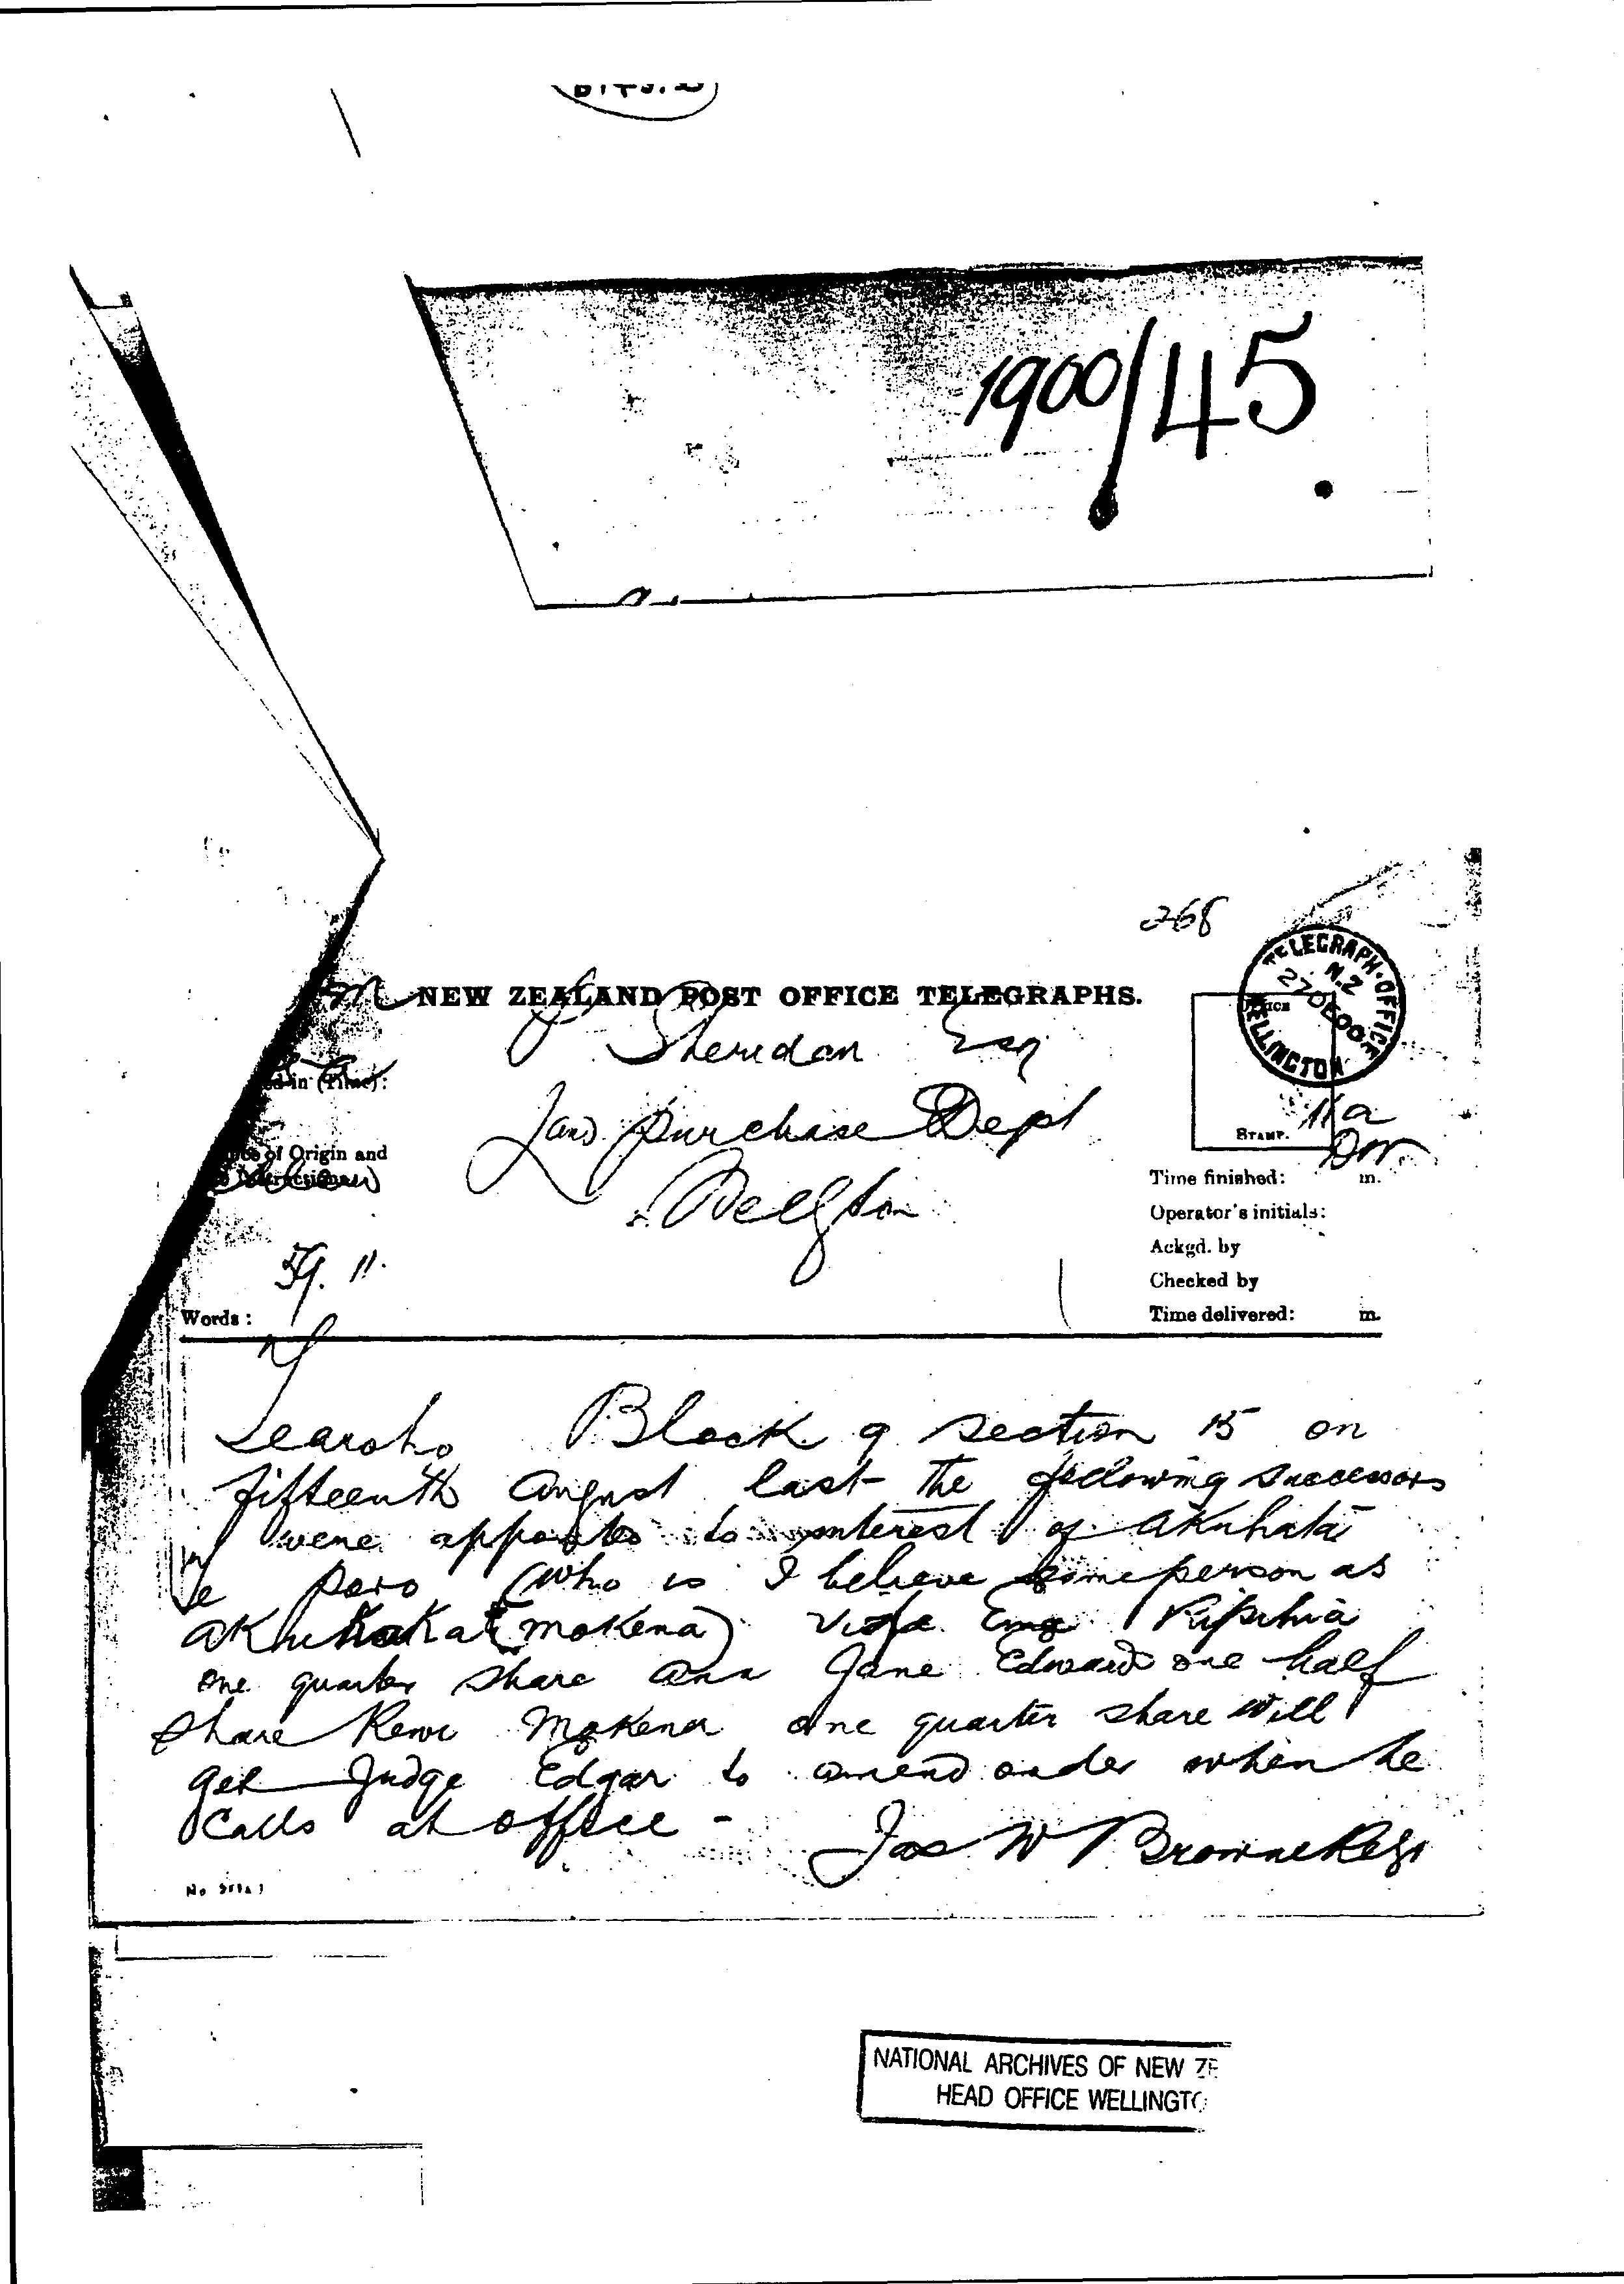 1900/45
268
NEW ZEALAND POST OFFICE TELEGRAPHS.
TELEGRAPH OFFICE
N.Z
27 DE 00
WELLINGTON
Sheridan Esq
in (Time):
Land Purchase Dept
11 a
STAMP.
of Origin and
Wellgton
Time finished: m.
Operator's initials:
Ackgd. by
59. 11.
Checked by
Words:
Time delivered: m.
Block 9 section 15 on
fifteenth August last the following successors
were appointed to interest of Akuhata
te Paro (who is I believe same person as
Mokena)
one quarter share Ann Jane Edward one half
share Rewi Mokena one quarter share will
get Judge Edgar to amend order when he
calls at office -
Jas W Browne Regr
NATIONAL ARCHIVES OF NEW ZE
HEAD OFFICE WELLINGTO